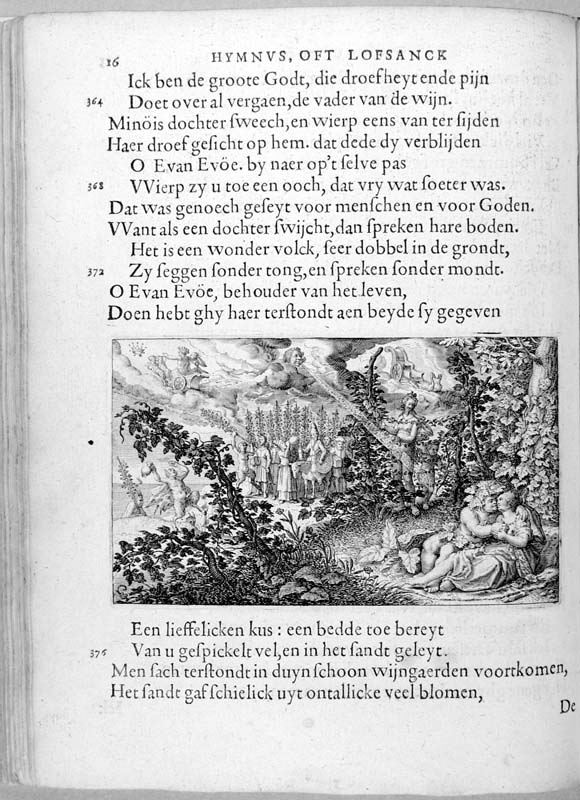 16 HYMNVS, OFT LOFSANCK
Ick ben de groote Godt, die droefheyt ende pijn
364 Doet over al vergaen, de vader van de wijn.
Minöis dochter ſweech, en wierp eens van ter ſijden
Haer droef geſicht op hem. dat dede dy verblijden
O Evan Evöe. by naer op't ſelve pas
368 VVierp zy u toe een ooch, dat vry wat ſoeter was.
Dat was genoech geſeyt voor menſchen en voor Goden.
VVant als een dochter ſwijcht, dan ſpreken hare boden.
Het is een wonder volck, ſeer dobbel in de grondt,
372 Zy ſeggen ſonder tong, en ſpreken ſonder mondt.
O Evan Evöe, behouder van het leven,
Doen hebt ghy haer terſtondt aen beyde ſy gegeven
Een lieffelicken kus : een bedde toe bereyt
376 Van u geſpickelt vel, en in het ſandt geleyt.
Men ſach terſtondt in duyn ſchoon wijngaerden voortkomen,
Het ſandt gaf ſchielick uyt ontallicke veel blomen,
De